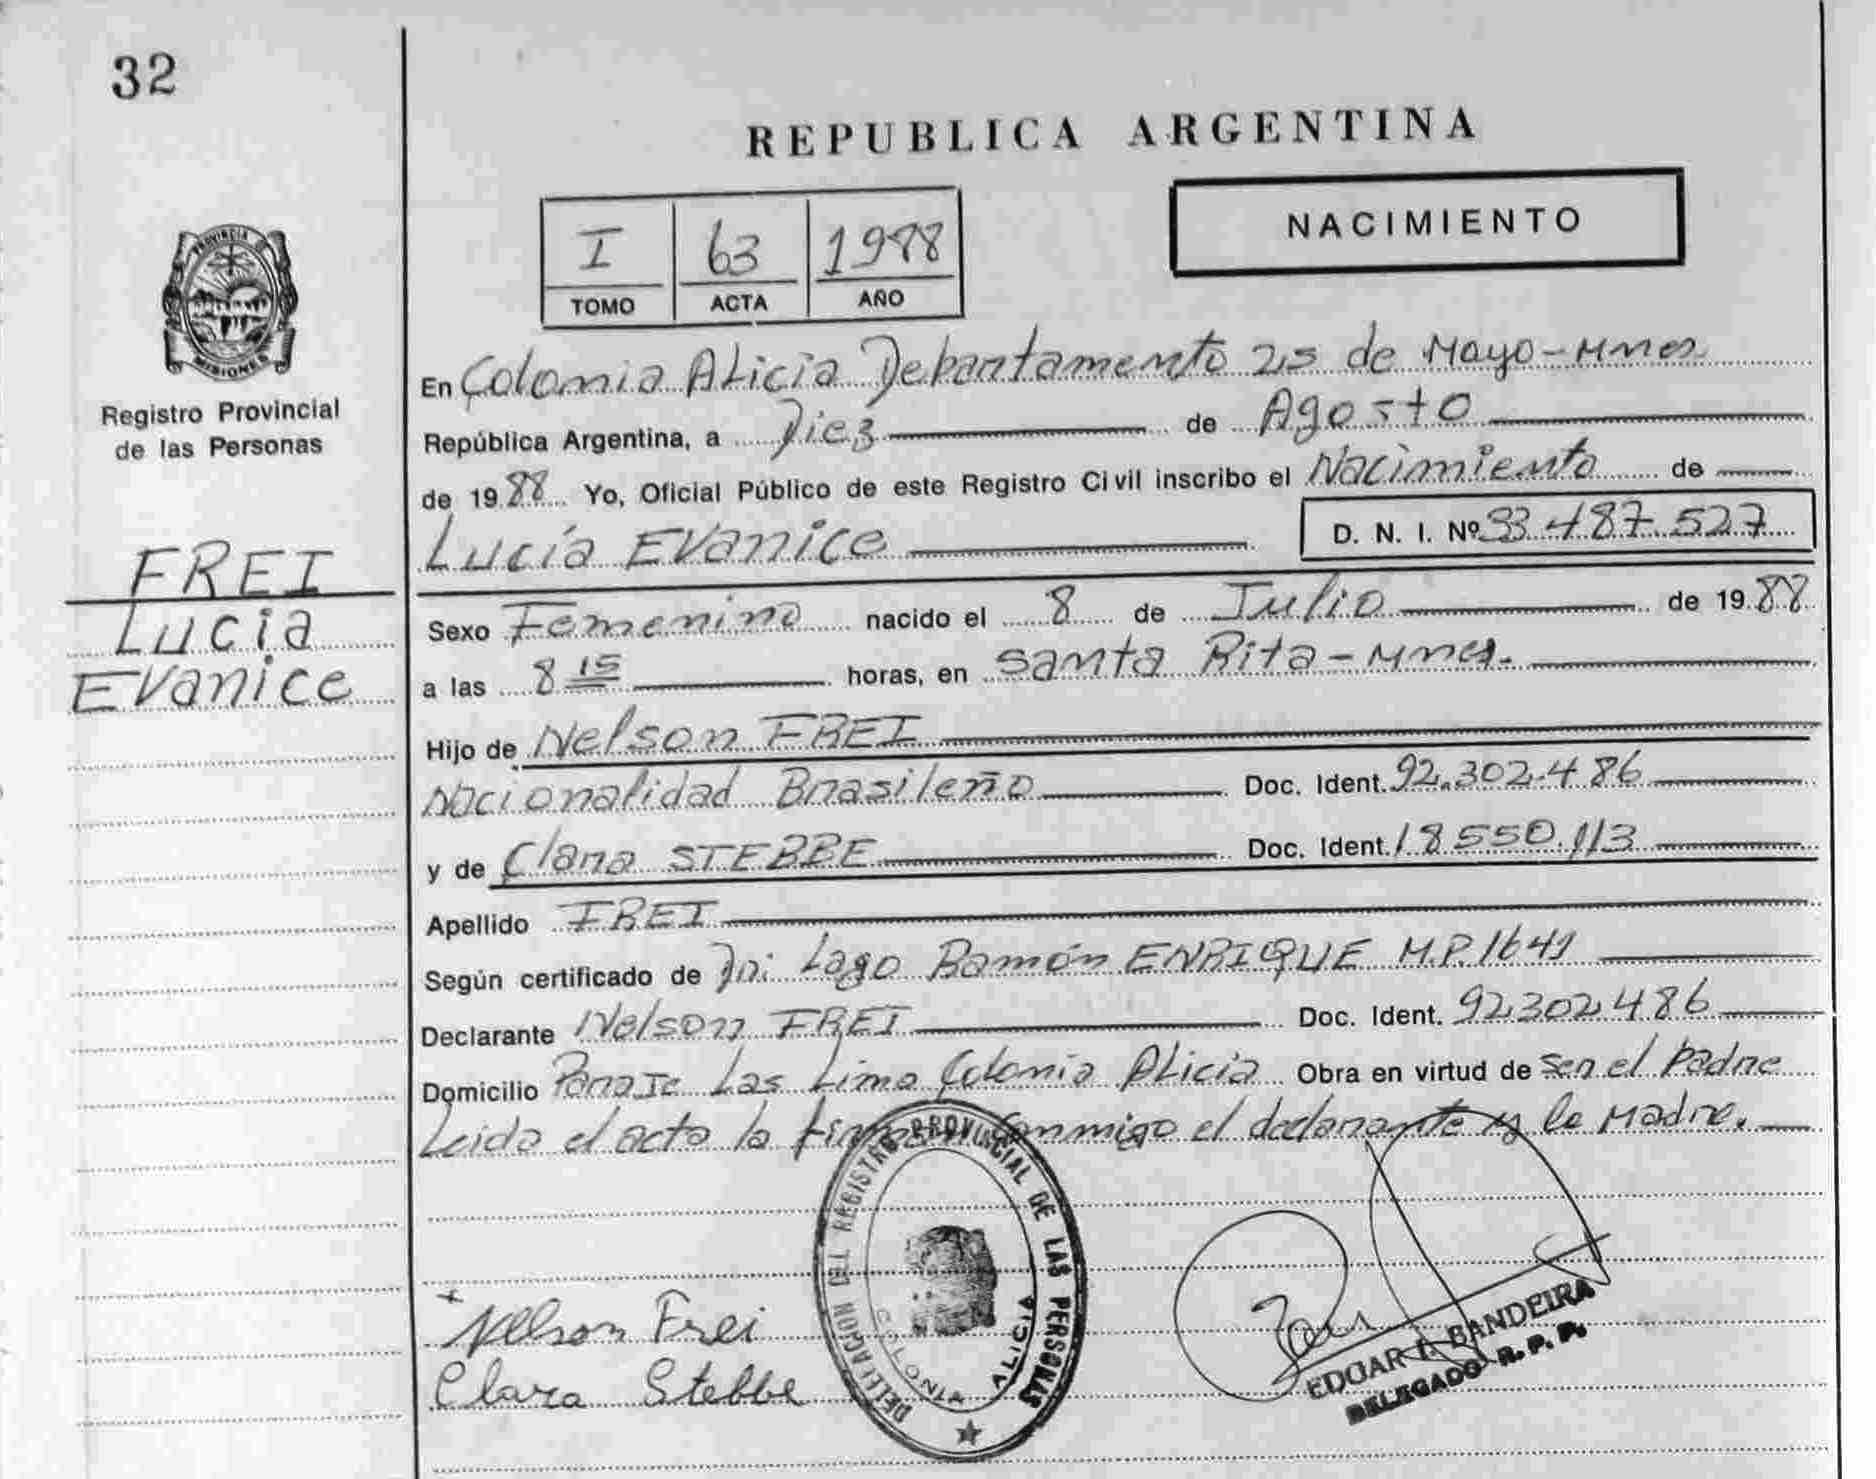 32
REPUBLICA ARGENTINA
NACIMIENTO
I 63 1988
TOMO ACTA AÑO
PROVINCIA DE
MISIONES
Registro Provincial
de las Personas
FREI
Lucía
Evanice
En Colonia Alicia Departamento 25 de Mayo-Mnes.
República Argentina, a Diez de Agosto
de 1988 Yo, Oficial Público de este Registro Civil inscribo el Nacimiento de
Lucía Evanice D. N. I. Nº 33.487.527
Sexo Femenino nacido el 8 de Julio de 1988
a las 8 15 horas, en Santa Rita-Mnes.
Hijo de Nelson FREI
Nacionalidad Brasileño Doc. Ident. 92.302.486
y de Clara STEBBE Doc. Ident. 18.550.113
Apellido FREI
Según certificado de Dr: Lago Ramón ENRIQUE M.P. 1641
Declarante Nelson FREI Doc. Ident. 92.302.486
Domicilio Paraje Las Lima Colonia Alicia Obra en virtud de ser el Padre
Leida el acta la firman conmigo el declarante y la Madre.
DELEGACION DEL REGISTRO PROVINCIAL DE LAS PERSONAS
COLONIA ALICIA
Nelson Frei
Clara Stebbe
EDGAR BANDEIRA
DELEGADO R. P. P.